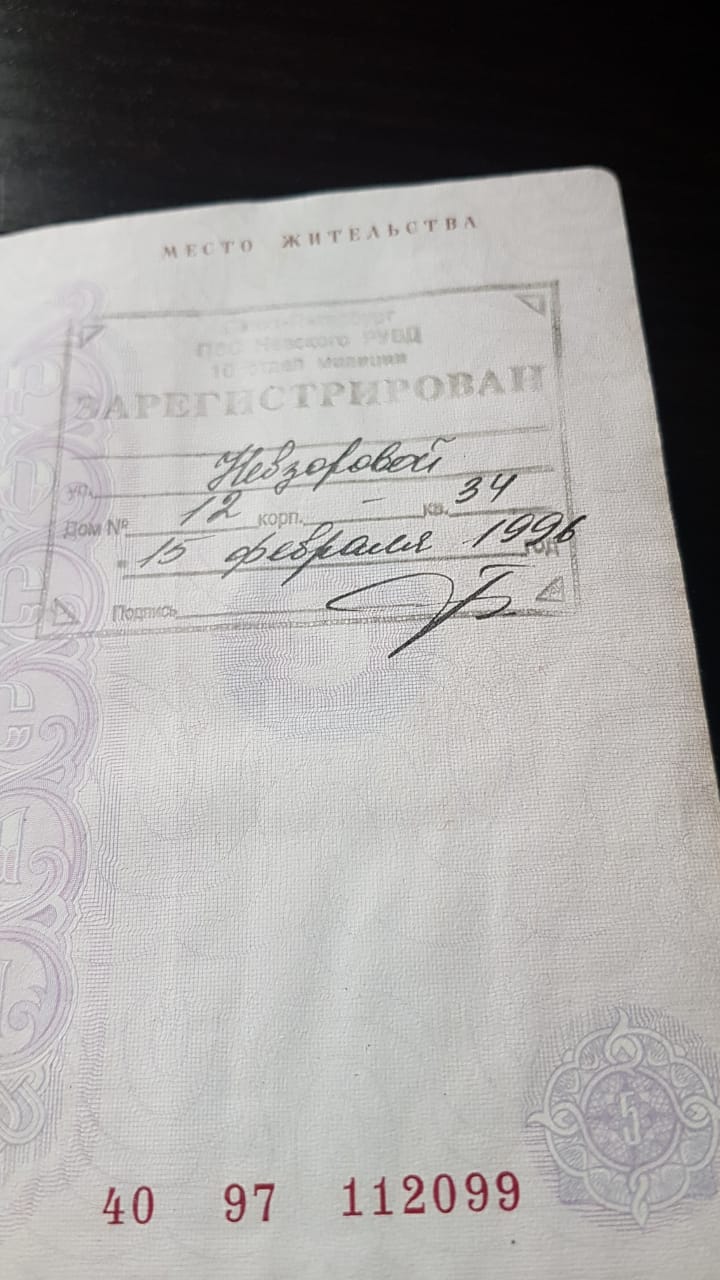 МЕСТО ЖИТЕЛЬСТВА
Санкт-Петербург
ПВС Невского РУВД
10 отдел милиции
ЗАРЕГИСТРИРОВАН
ул. Невзоровой
Дом № 12 корп. - кв. 34
15 февраля 1996 год
Подпись
5
40 97 112099